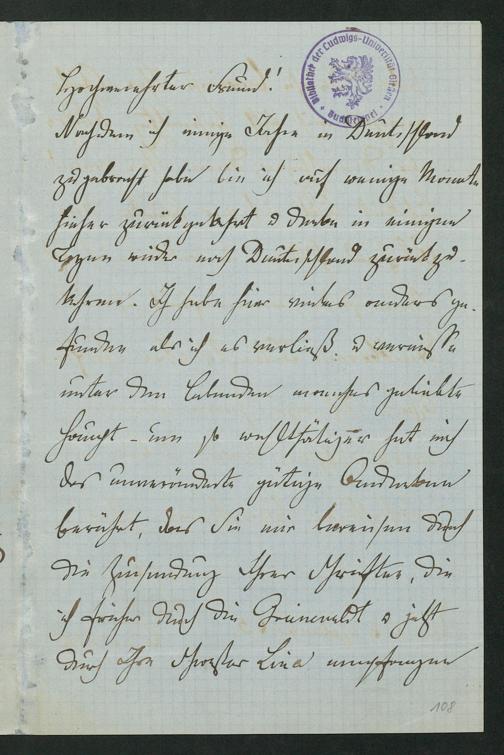 Hochverehrter Freund!
Nachdem ich einige Jahre in Deutschland
zugebracht habe bin ich auf wenige Monate
hieher zurückgekehrt & denke in einigen
Tagen wieder nach Deutschland zurückzu-
kehren. Ich habe hier vieles anders ge-
funden als ich es verließ & vermisse
unter den Lebenden manches geliebte
Haupt - um so wohlthätiger hat mich
das unveränderte gütige Andenken
berührt, das Sie mir beweisen durch
die Zusendung Ihrer Schriften, die
ich früher durch die & jetzt
durch Ihre Schwester Lina empfangen
Bibliothek der Ludwigs-Universität Gießen
108